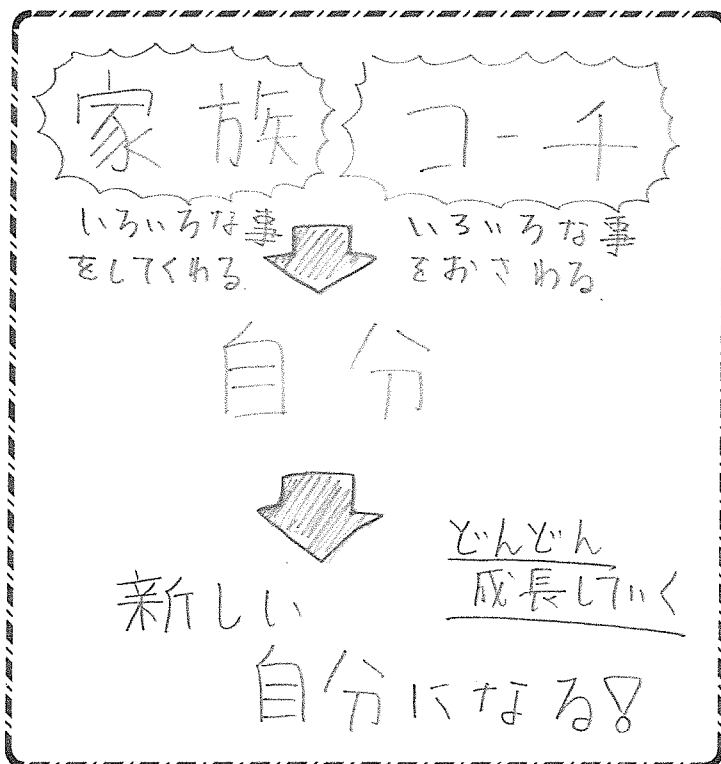 家族
コーチ
いろいろな事
をしてくれる
いろいろな事
をおさわる
自分
どんどん
成長していく
新しい
自分になる!